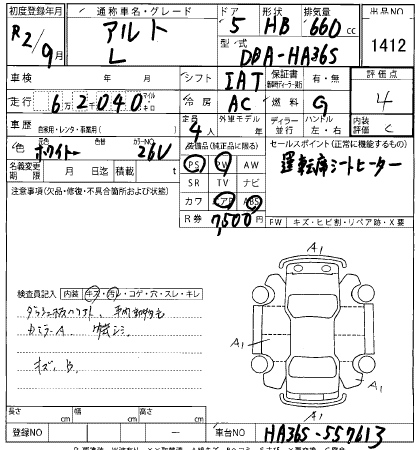 初度登録年月 通称車名・グレード ドア 形状 排気量 出品NO
R2/9月 アルト 5 HB 660 cc 1412
L 型式 DBA-HA36S
車検 年 月 シフト IAT 保証書 有・無 評価点
走行 6万2040 マイル キロ 冷房 AC 燃料 G 4
車歴 自家用・レンタ・事業用( ) 定員 4人 外車モデル 年 ディーラー 並行 ハンドル 左・右 内装評価 C
色 元色 ホワイト 色替 カラーNO 26U 装備品(純正品に限る) セールスポイント(正常に機能するもの)
名義変更期限 月 日迄 積載 t PS PW AW 運転席シートヒーター
注意事項(欠品・修復・不具合箇所および状態) SR TV ナビ
カワ エアB ABS
R券 7,500円 FW キズ・ヒビ割・リペア跡・X要
A1
検査員記入 内装 キズ・汚レ・コゲ・穴・スレ・キレ
A1
キズ、B
A1
A1
長さ cm 幅 cm 高さ cm
登録NO 車台NO HA36S-557613